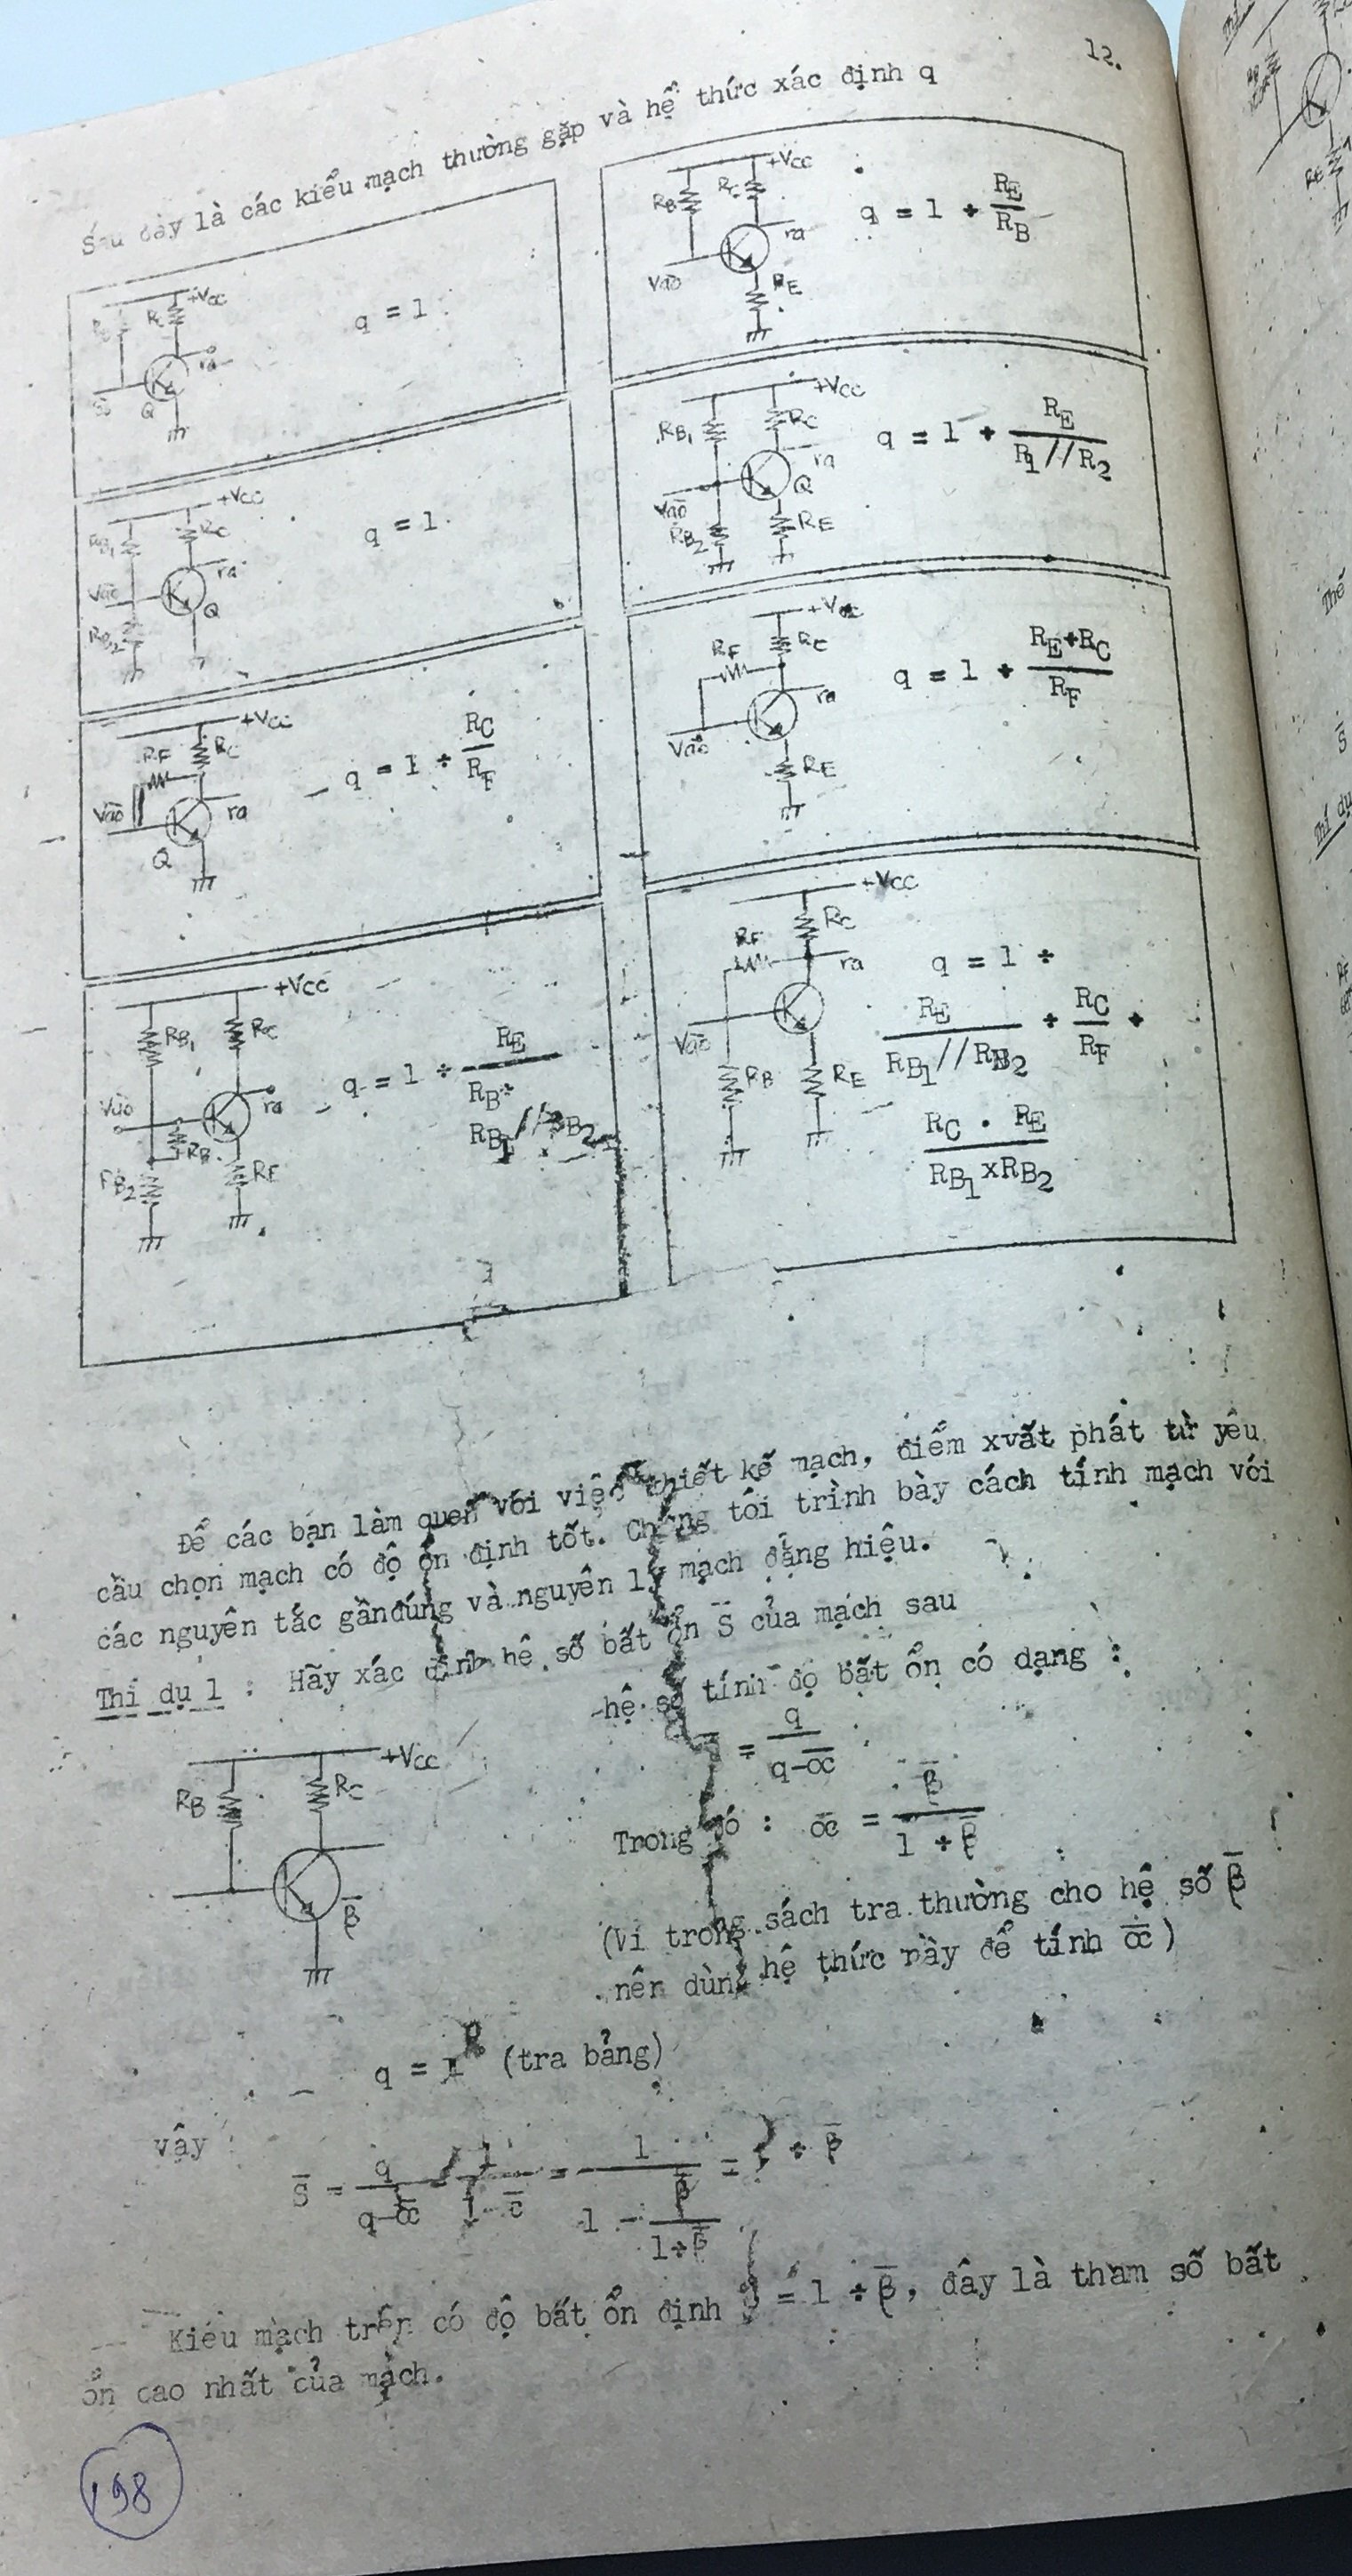 12.
Sau đây là các kiểu mạch thường gặp và hệ thức xác định q
+Vcc
RC
ra
Q
q = 1
+Vcc
RB1
RC
Vào
ra
Q
RB2
q = 1
+Vcc
RF
RC
Vào
ra
Q
q = 1 + RC / RF
+Vcc
RB1
RC
Vào
ra
RB
RB2
RE
q = 1 + RE / RB + RB1//RB2
+Vcc
RB
RC
ra
Vào
RE
q = 1 + RE / RB
+Vcc
RB1
RC
ra
Q
Vào
RB2
RE
q = 1 + RE / R1//R2
+Vcc
RF
RC
ra
Vào
RE
q = 1 + RE+RC / RF
+Vcc
RC
RF
ra
Vào
RB
RE
q = 1 +
RE / RB1//RB2 + RC / RF +
RC . RE / RB1xRB2
Để các bạn làm quen với việc thiết kế mạch, điểm xvất phát từ yêu
cầu chọn mạch có độ ổn định tốt. Chúng tôi trình bày cách tính mạch với
các nguyên tắc gầnđúng và nguyên lý mạch đẳng hiệu.
Thí dụ 1 : Hãy xác định hệ số bất ổn S̄ của mạch sau
hệ số tính độ bất ổn có dạng :
= q / q-ᾱ
+Vcc
RB
RC
β̄
Trong đó : ᾱ = β̄ / 1 + β̄
(Vì trong sách tra thường cho hệ số β̄
nên dùng hệ thức này để tính ᾱ)
q = 1 (tra bảng)
vậy
S̄ = q / q-ᾱ = 1 / 1-ᾱ = 1 / 1 - β̄ / 1+β̄ = 1 + β̄
Kiểu mạch trên có độ bất ổn định = 1 + β̄, đây là tham số bất
ổn cao nhất của mạch.
198